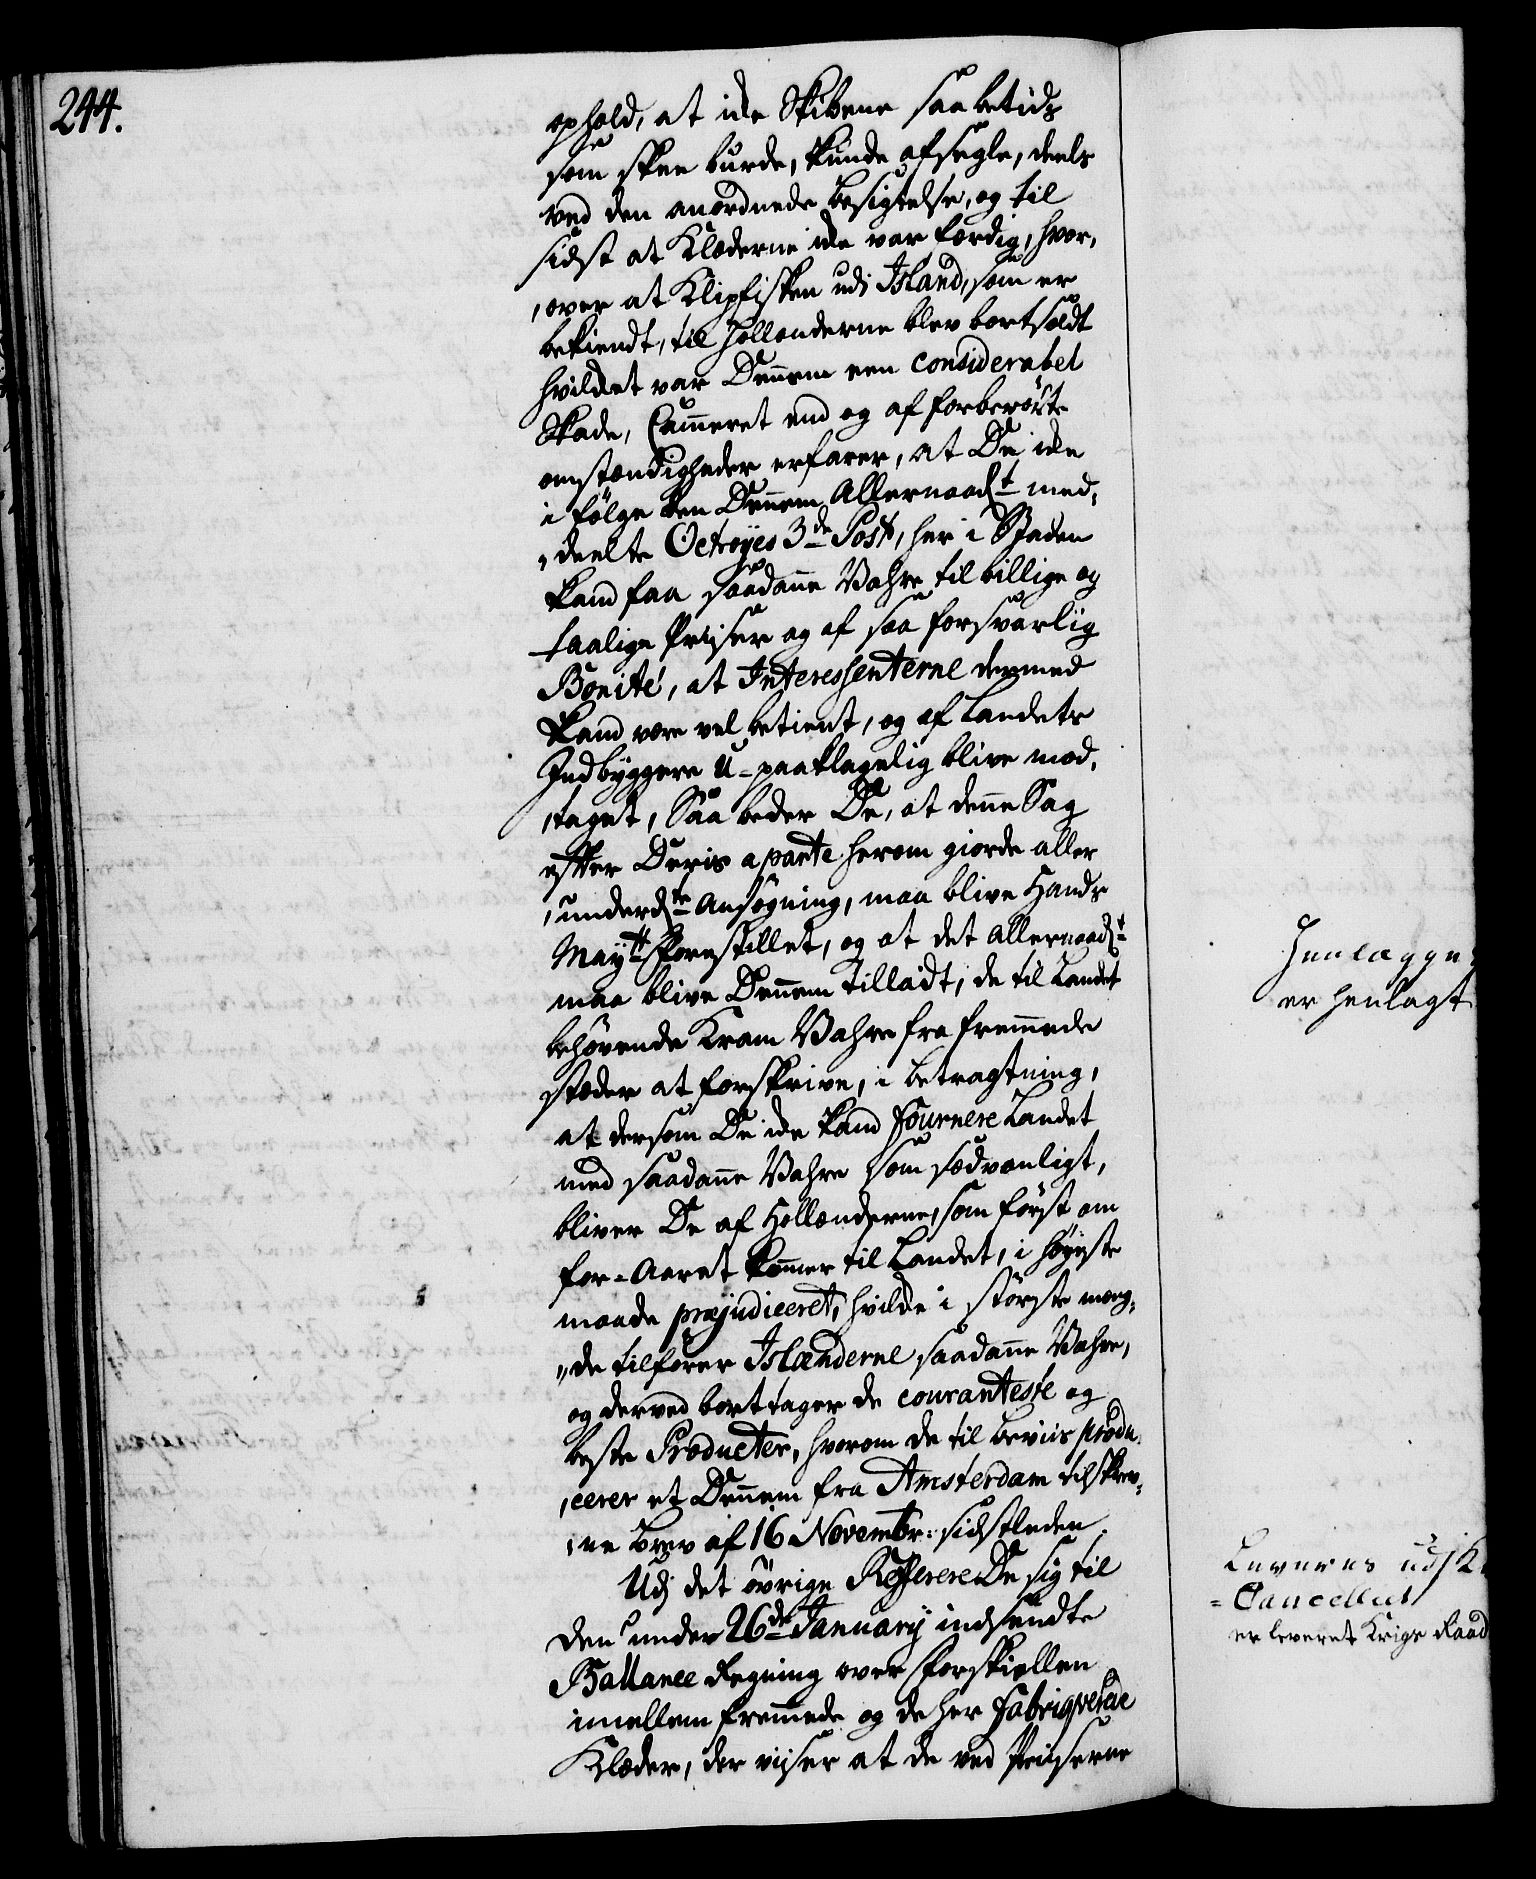 244.
ophold, at icke Skibene saa betids
som skee burde, kunde afsegle, deels
ved den anordnede besigtelse, og til
sidst at Klæderne icke var færdig, hvor,
,over at Klipfisken udi Island, som er
bekiendt, til Hollænderne blev bortsoldt
hvilcket var Dennem een considerabel
Skade, Cammeret end og af forberørte
omstændigheder erfarer, at De icke
i følge den Dennem Allernaadst med,
,deelte Octroyes 3de Post, her i Staden
kand faa saadanne Vahre til billige og
taalige Prijser og af saa forsvarlig
Bonité, at Interessenterne dermed
kand være vel betient, og af Landets
Indbyggere U-paaklagelig blive mod,
,taget, Saa beder De, at denne Sag
efter Deris aparte herom giorde aller
,underdte Ansøgning, maa blive Hands
Maytt forestillet, og at det allernaadst
maa blive Dennem tilladt, de til Landet
behøvende Kram Vahre fra fremmede
stæder at forskrive, i betragtning,
at dersom De icke kand fournere Landet
med saadanne Vahre som sædvanligt,
bliver De af Hollænderne, som først om
for-Aaret kommer til Landet, i høyeste
maade præjudiceret, hvilcke i største mæng,
,,de tilfører Islænderne saadanne Vahre,
og derved borttager de couranteste og
beste Producter, hvorom de til beviis produ,
,cerer et Dennem fra Amsterdam tilskrev,
,ne brev af 16 Novembr: sidstleden.
Udj det øvrige Refferere De sig til
den under 26de January indsendte
Ballance Regning over forskiellen
imellem fremmede og de her fabriqverede
Klæder, der viser at de ved Prijserne
Henlægges
er henlagt
Leveres udj K
=Cancelliet
er leveret Krigs Raad